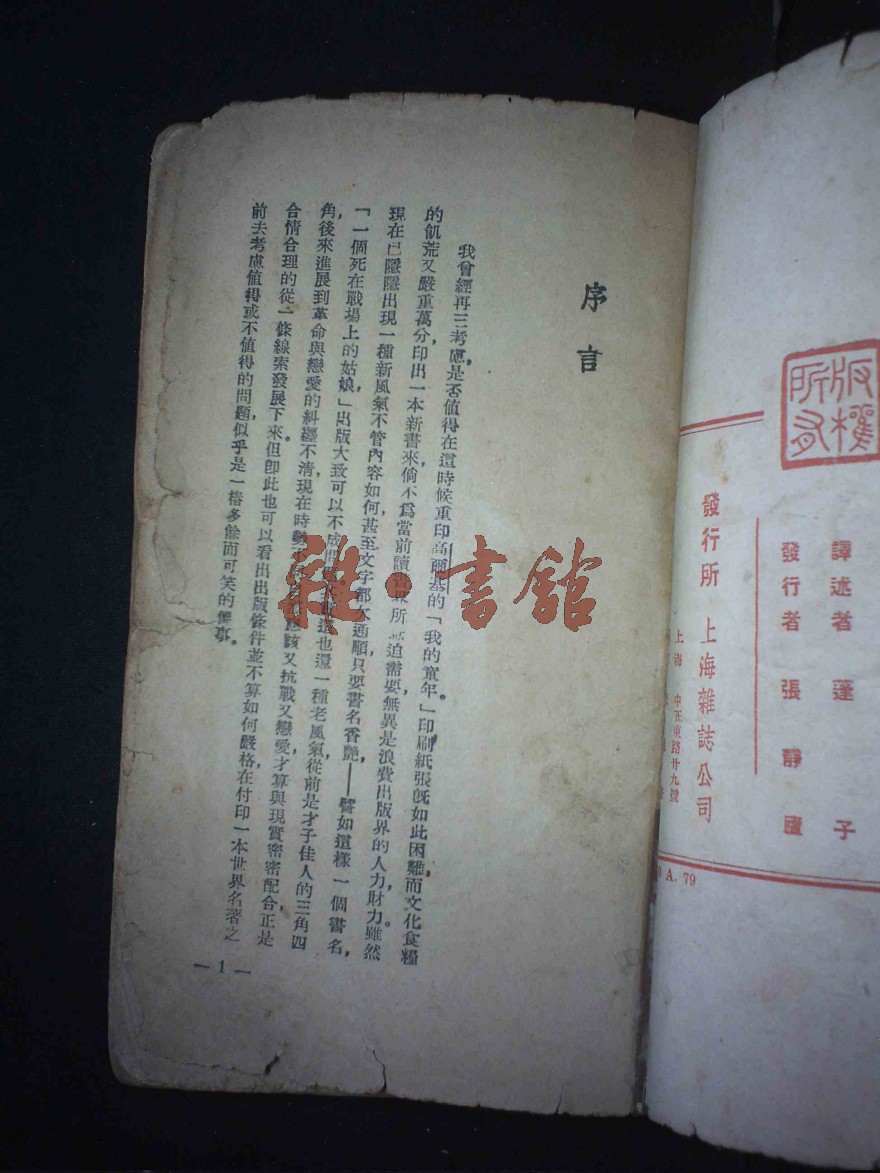 版權所有
譯述者 蓬子
發行者 張靜廬
發行所 上海雜誌公司
上海 中正東路廿九號
A. 79
序言
我曾經再三考慮,是否值得在這時候重印高爾基的「我的童年。」印刷紙張旣如此困難,而文化食糧
的飢荒又嚴重萬分,印出一本新書來,倘不爲當前讀 所 迫需要,無異是浪費出版界的人力,財力。雖然
現在已隱隱出現一種新風氣,不管內容如何,甚至文字都不通順,只要書名香艷,——譬如這樣一個書名,
「一個死在戰場上的姑娘,」出版大致可以不成問 這也還一種老風氣,從前是才子佳人的三角四
角,後來進展到革命與戀愛的糾纏不清,現在時 該又抗戰又戀愛,才算與現實密密配合,正是
合情合理的從一條線索發展下來。但卽此也可以看出出版條件並不算如何嚴格,在付印一本世界名著之
前去考慮值得或不值得的問題,似乎是一樁多餘而可笑的 事。
— 1 —
雜·書館